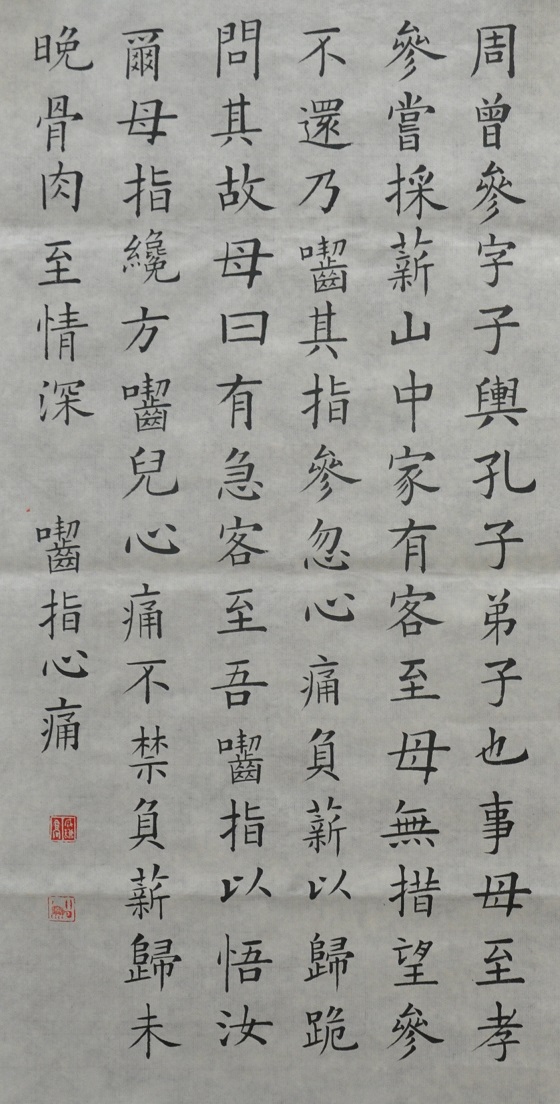 周曾參字子輿孔子弟子也事母至孝
參嘗採薪山中家有客至母無措望參
不還乃嚙其指參忽心痛負薪以歸跪
問其故母曰有急客至吾嚙指以悟汝
爾母指纔方嚙兒心痛不禁負薪歸未
晚骨肉至情深 嚙指心痛